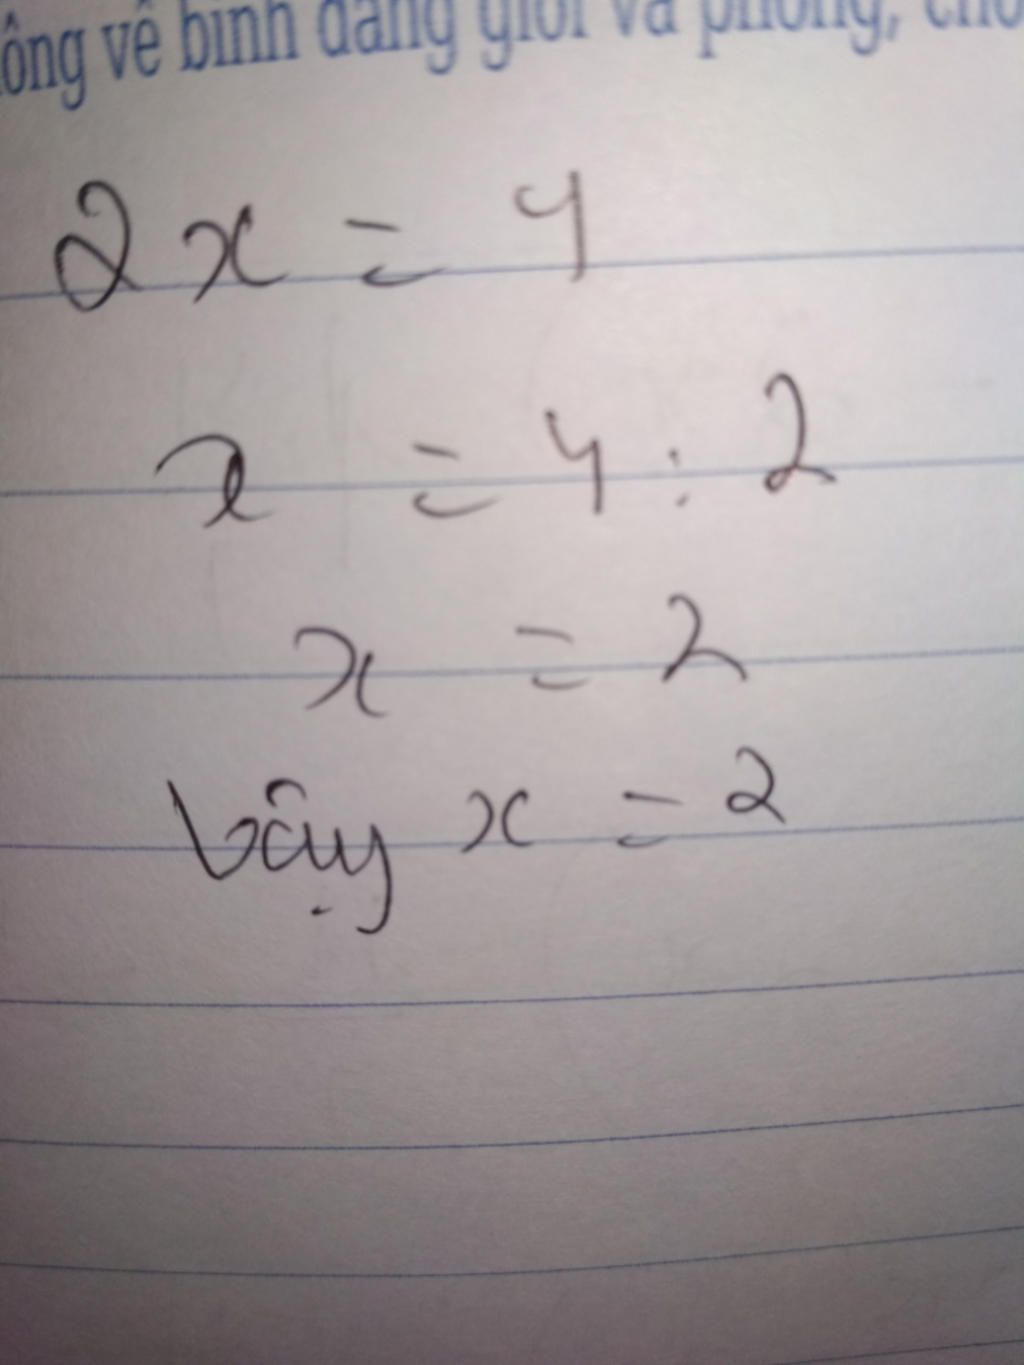 ông về bình đẳng giới và phòng, chố
2x = 4
x = 4 : 2
x = 2
vậy x = 2